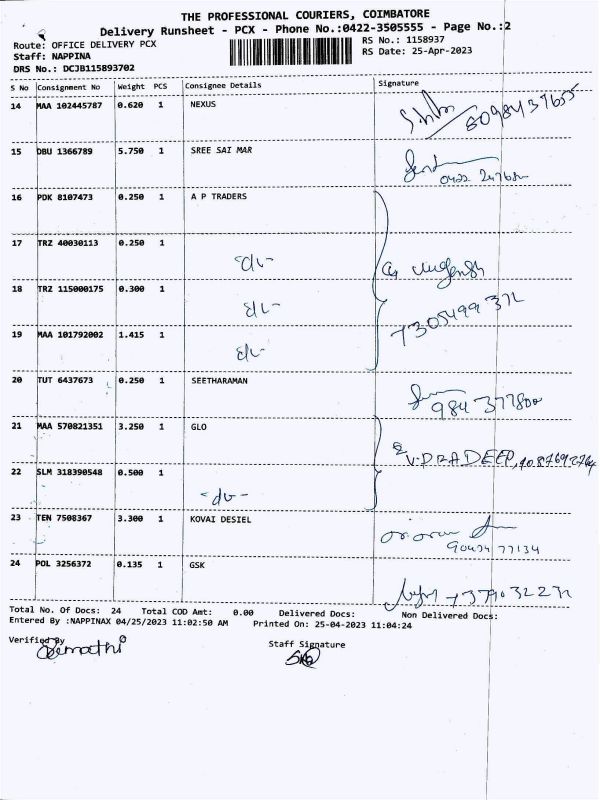 THE PROFESSIONAL COURIERS, COIMBATORE
Delivery Runsheet - PCX - Phone No.:0422-3505555 - Page No.:2
Route: OFFICE DELIVERY PCX
RS No.: 1158937
Staff: NAPPINA
RS Date: 25-Apr-2023
DRS No.: DCJB115893702
S No Consignment No Weight PCS Consignee Details Signature
14 MAA 102445787 0.620 1 NEXUS
15 DBU 1366789 5.750 1 SREE SAI MAR
16 PDK 8107473 0.250 1 A P TRADERS
17 TRZ 40030113 0.250 1
18 TRZ 115000175 0.300 1
19 MAA 101792002 1.415 1
20 TUT 6437673 0.250 1 SEETHARAMAN
21 MAA 570821351 3.250 1 GLO
V.PRADEEP
22 SLM 318390548 0.500 1
23 TEN 7508367 3.300 1 KOVAI DESIEL
24 POL 3256372 0.135 1 GSK
Total No. Of Docs: 24 Total COD Amt: 0.00 Delivered Docs: Non Delivered Docs:
Entered By :NAPPINAX 04/25/2023 11:02:50 AM Printed On: 25-04-2023 11:04:24
Verified By Staff Signature